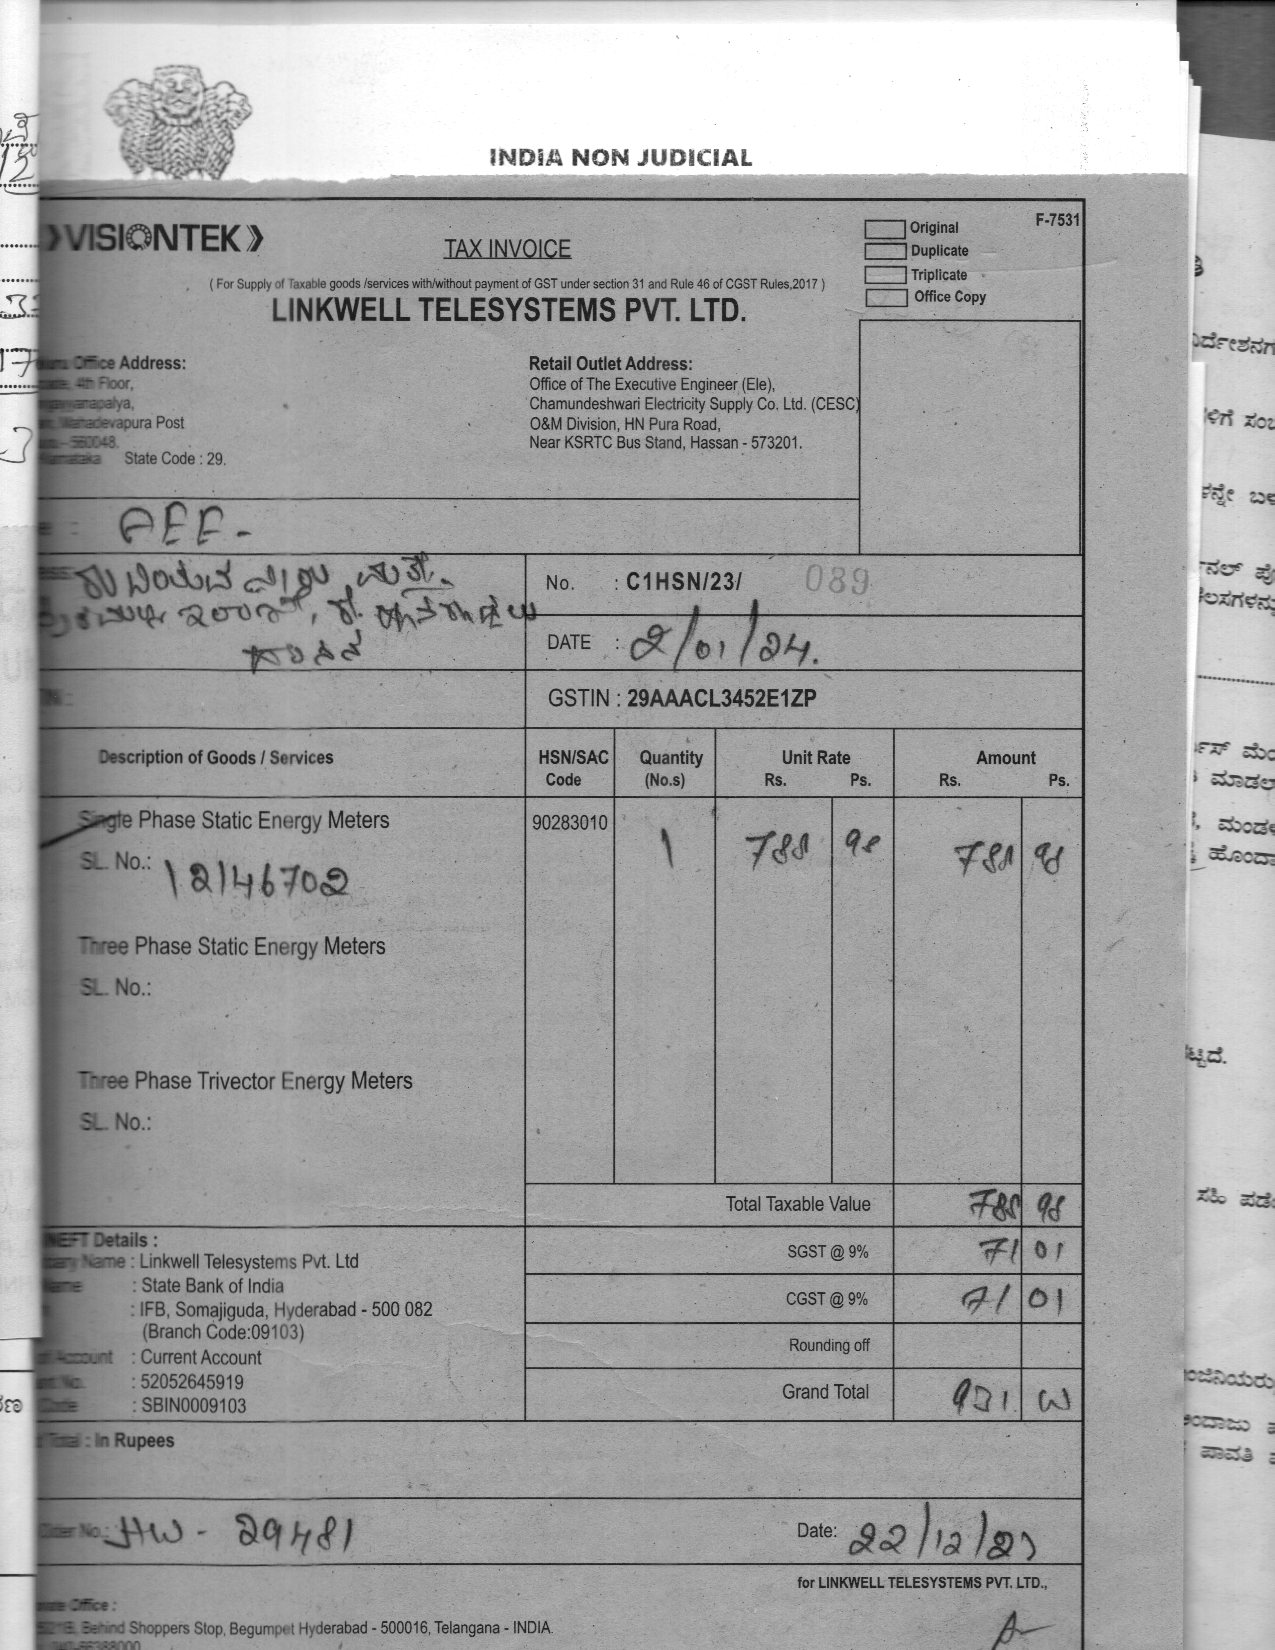 INDIA NON JUDICIAL
VISIONTEK
TAX INVOICE
Original
Duplicate
Triplicate
Office Copy
F-7531
( For Supply of Taxable goods /services with/without payment of GST under section 31 and Rule 46 of CGST Rules,2017 )
LINKWELL TELESYSTEMS PVT. LTD.
Office Address:
4th Floor,
Mahadevapura Post
- 560048.
Karnataka State Code : 29.
Retail Outlet Address:
Office of The Executive Engineer (Ele),
Chamundeshwari Electricity Supply Co. Ltd. (CESC)
O&M Division, HN Pura Road,
Near KSRTC Bus Stand, Hassan - 573201.
: AEE-
ಹಾಸನ
No. : C1HSN/23/ 089
DATE : 2/01/24.
GSTIN : 29AAACL3452E1ZP
Description of Goods / Services
HSN/SAC Code
Quantity (No.s)
Unit Rate
Rs. Ps.
Amount
Rs. Ps.
Single Phase Static Energy Meters 90283010 1 788 98 788 98
SL. No.: 12146702
Three Phase Static Energy Meters
SL. No.:
Three Phase Trivector Energy Meters
SL. No.:
Total Taxable Value 788 98
SGST @ 9% 71 01
CGST @ 9% 71 01
Rounding off
Grand Total 931.
NEFT Details :
Name : Linkwell Telesystems Pvt. Ltd
Name : State Bank of India
: IFB, Somajiguda, Hyderabad - 500 082
(Branch Code:09103)
Account : Current Account
No. : 52052645919
Code : SBIN0009103
Total : In Rupees
Order No.: HW - 29481
Date: 22/12/23
for LINKWELL TELESYSTEMS PVT. LTD.,
Office :
Behind Shoppers Stop, Begumpet Hyderabad - 500016, Telangana - INDIA.